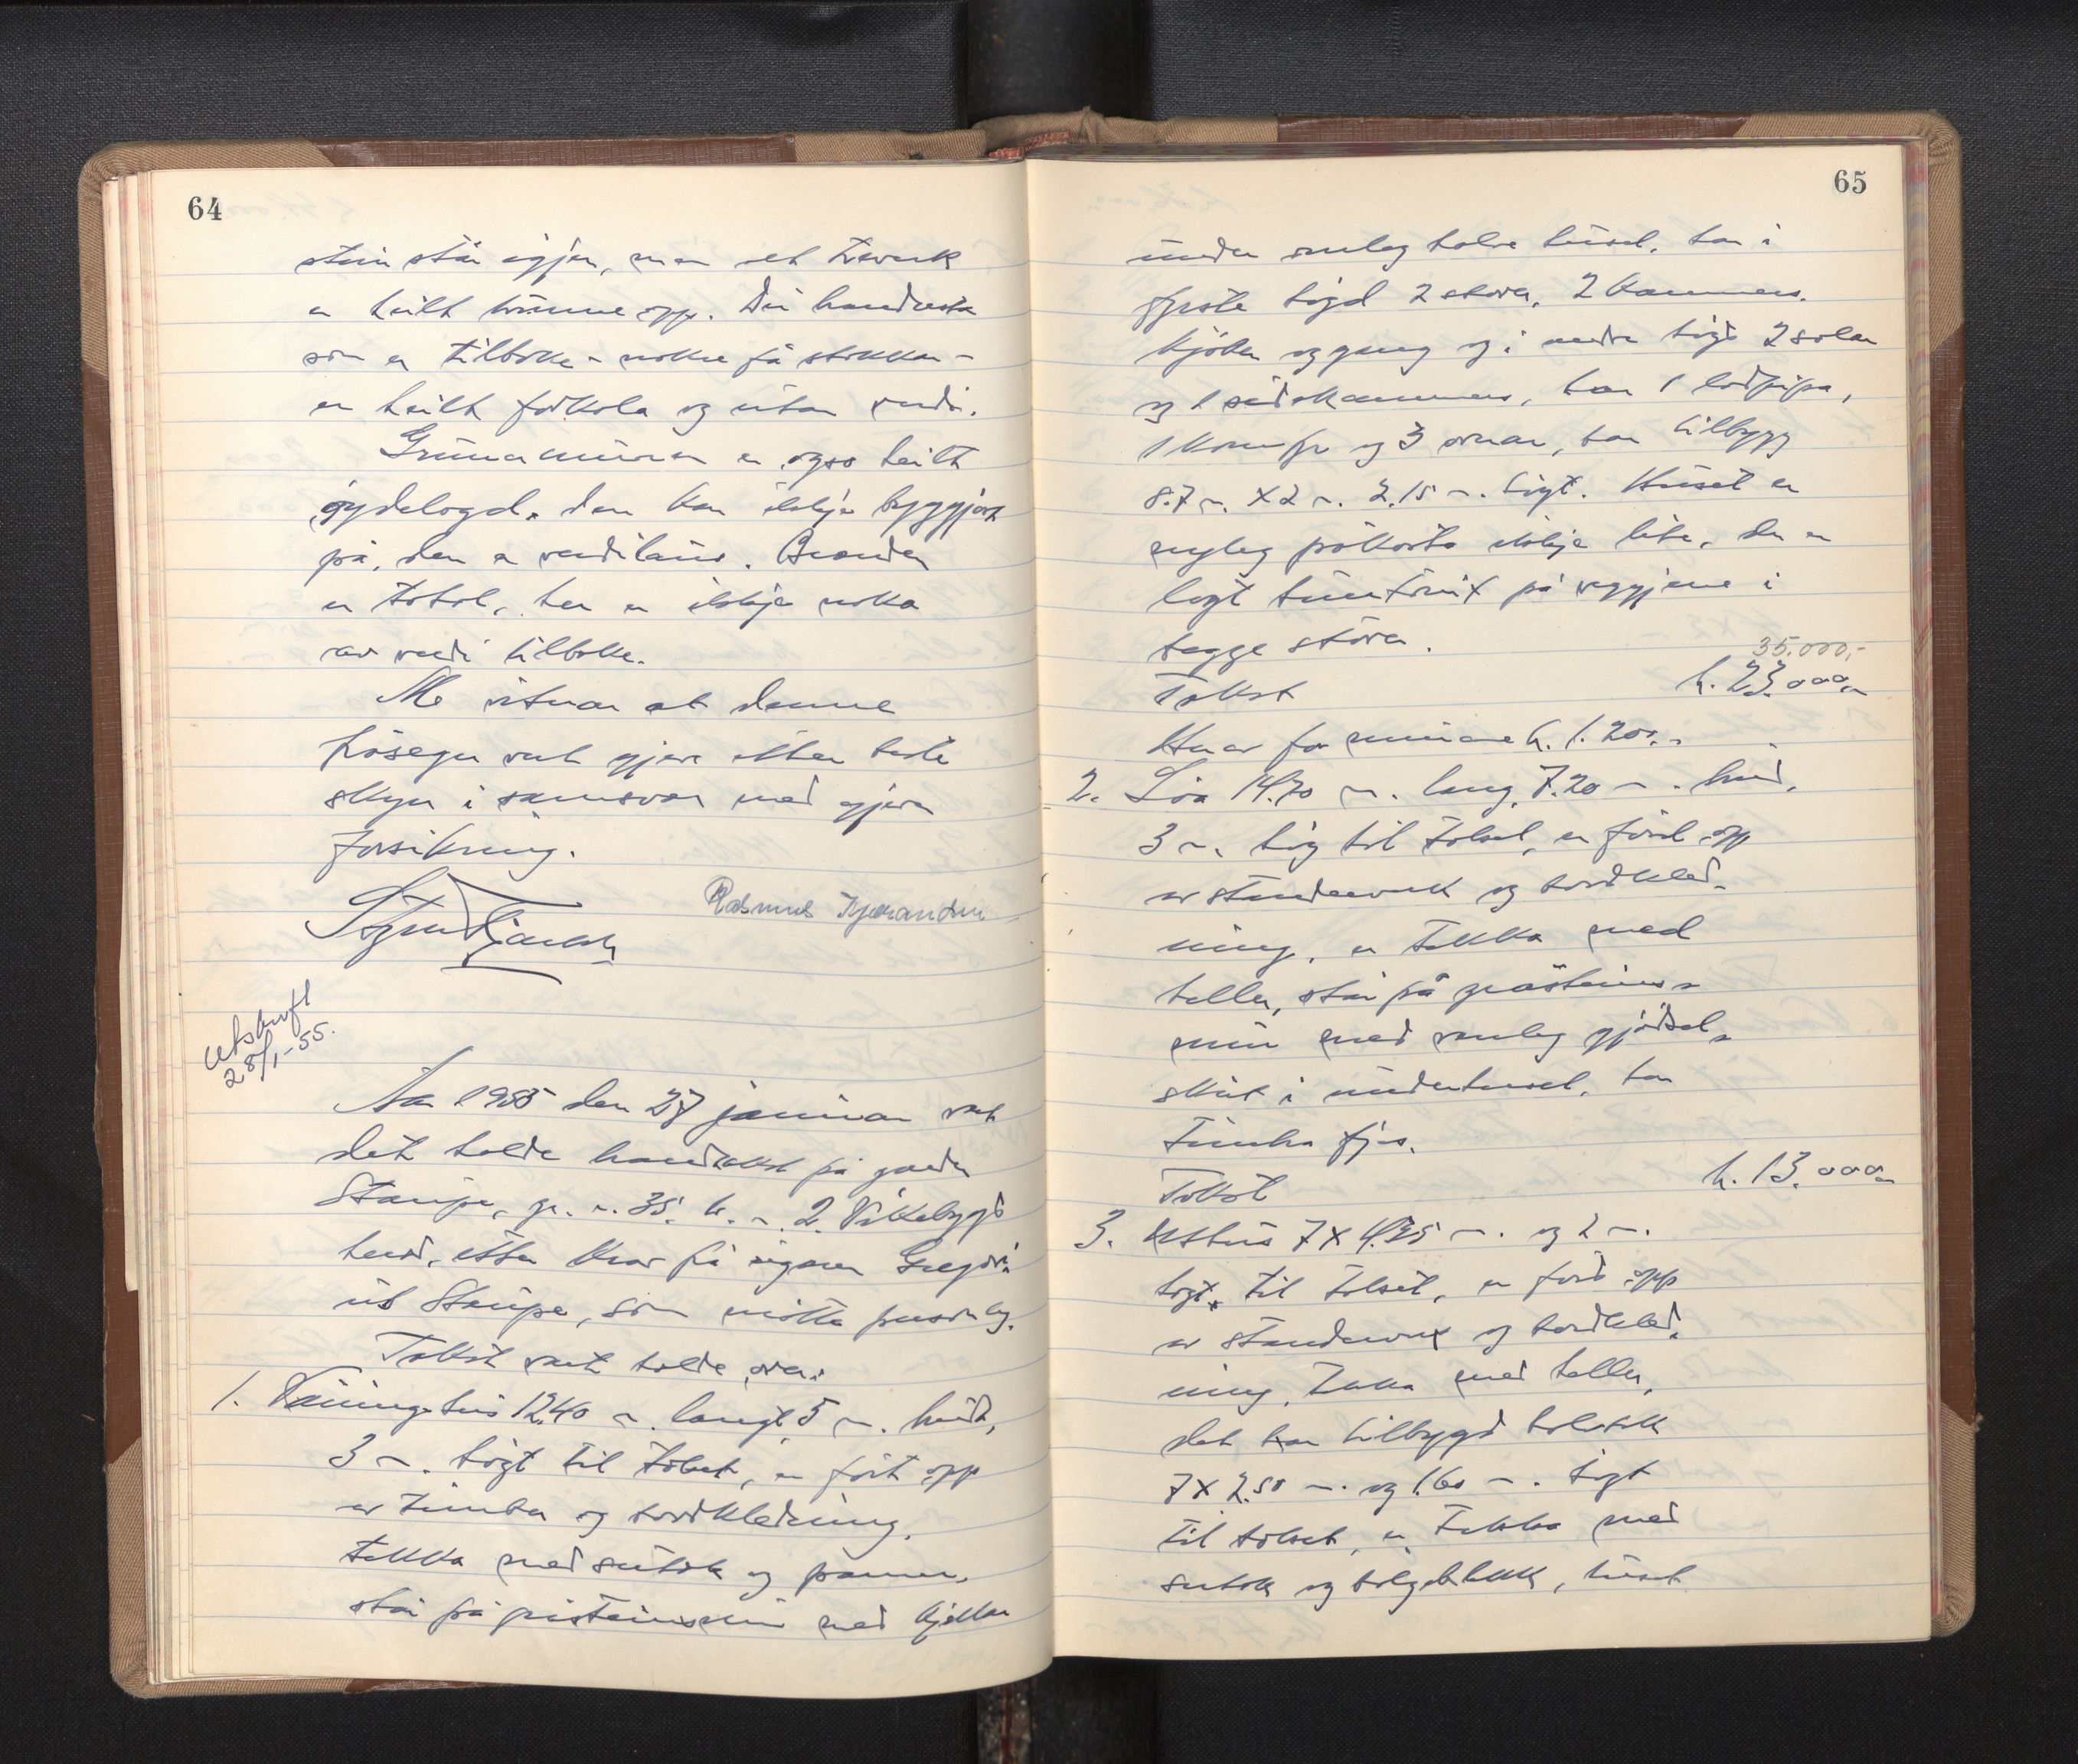 64
stein står igjen, men et treverk
er heilt brunne opp. Dei
som er tilbake - nokre få stokkar -
er heilt forkola og utan verdi.
Grunnmuren er ogso heilt
øydelogd, den kan ikkje byggjast
på, den er verdilaus. Branden
er total, her er ikkje noko
av verdi tilbake.
Me vitnar at denne
 vart gjere etter beste
skyn i samsvar med gjeven
forsikring.
Rasmus
Utskrift
28/1-55.
År 1955 den 27 januar vart
det halde branntakst på garden
Staupe, gr. n. 35. br. n. 2. Vikebygd
herad, etter krav frå eigaren Gregori-
us Staupe, som møtte personleg.
Takst vart halde over:
1. Våningshus 12.40 m. langt, 5 m. breidt,
3 m. høgt til taket, er ført opp
av timber og bordkledning,
tekka med sutak og panner,
står på gråsteinsmur med kjellar
65
under omlag halve huset, har i
fyrste høgd 2 stover, 2 kammers,
kjøken og gang og i andre høgd 2 salar
og 1 sidekammers, har 1 ladpipa,
1 komfyr og 3 omnar, har tilbygg
8.7 m. x 2 m. 2.15 m. høgt. Huset er
nyleg påkosta ikkje lite, der er
lagt huntonit på veggjene i
begge stover.
35.000,-
Takst k. 23.000,-
Knar for murane k. 1.200.-
2. Løa 14.70 m. lang, 7.20 m. breid,
3 m. høg til taket, er førd opp
av standerverk og bordkled-
ning, er tekka med
heller, står på gråsteins-
mur med vanleg gjødsel-
skut i underhuset, har
timbra fjøs.
Takst k. 13.000,-
3. Uthus 7 x 4.35 m. og 2 m.
høgt til taket, er ført opp
av standerverk og bordkled-
ning, tekka med heller,
det har tilbygd halvtak
7 x 2.50 m. og 1.60 m. høgt
til taket, er tekka med
sutak og bølgeblekk, huset